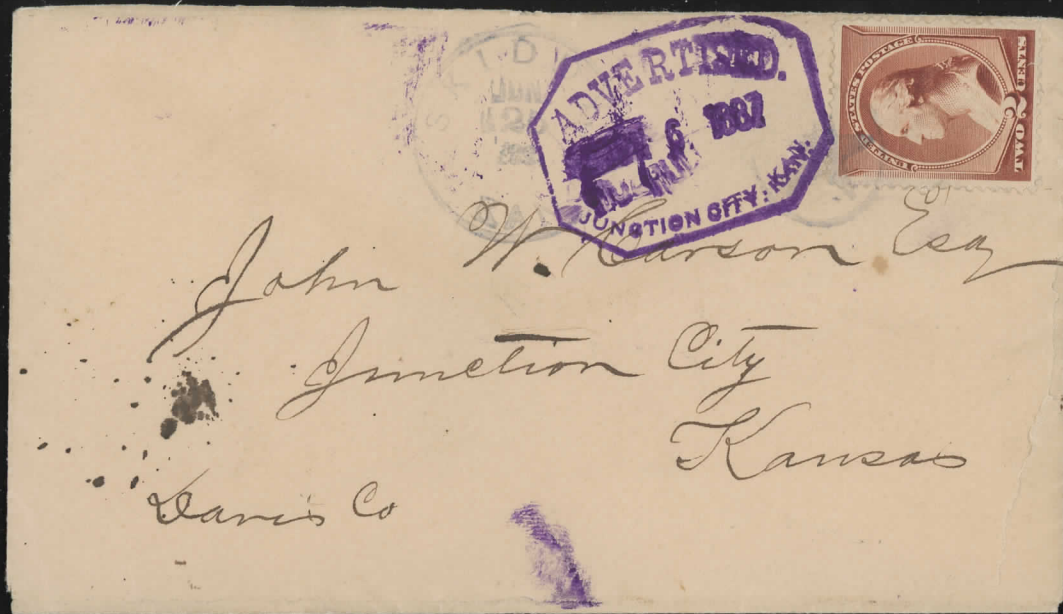 ADVERTISED.
6 1887
JUNCTION CITY, KAN.
UNITED STATES POSTAGE
TWO 2 CENTS
John W. Carson Esq
Junction City
Kansas
Davis Co